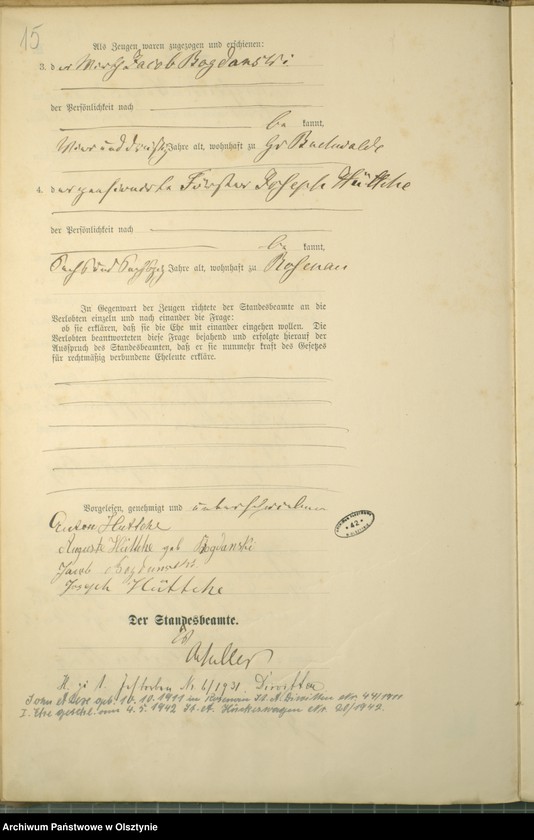 15
Als Zeugen waren zugezogen und erschienen:
3. der Wirth Jacob Bogdanski
der Persönlichkeit nach
be kannt,
Vier und dreißig Jahre alt, wohnhaft zu Gr Buchwalde
4. der pensionirte Förster Joseph Hüttche
der Persönlichkeit nach
be kannt,
Sechs und sechszig Jahre alt, wohnhaft zu Rosenau
In Gegenwart der Zeugen richtete der Standesbeamte an die
Verlobten einzeln und nach einander die Frage:
ob sie erklären, daß sie die Ehe mit einander eingehen wollen. Die
Verlobten beantworteten diese Frage bejahend und erfolgte hierauf der
Ausspruch des Standesbeamten, daß er sie nunmehr kraft des Gesetzes
für rechtmäßig verbundene Eheleute erkläre.
Vorgelesen, genehmigt und unterschrieben
Anton Hüttche
Auguste Hüttche geb Bogdanski
Jacob Bogdanski
Joseph Hüttche
42
Der Standesbeamte.
M. zu 1. gestorben Nr. 6/1931 Divitten
Sohn geb. 16.10.1911 in Rosenau St. A. Divitten Nr. 44/1911
I. Ehe geschl. am 4.5.1942 St. A. Nr. 20/1942.
Archiwum Państwowe w Olsztynie